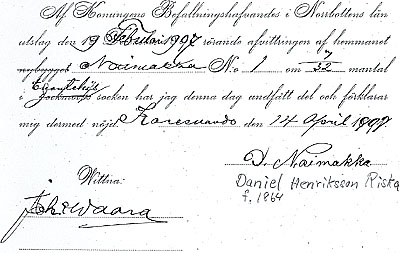 Af Konungens Befallningshafvandes i Norrbottens län
utslag den 19 Februari 1907 rörande afvittringen af hemmanet
Naimakka No 1 om 7/32 mantal
i socken har jag denna dag undfått del och förklarar
mig dermed nöjd. Karesuando den 14 April 1907.
D. Naimakka
Daniel Henriksson Riska
f. 1864
Wittna: